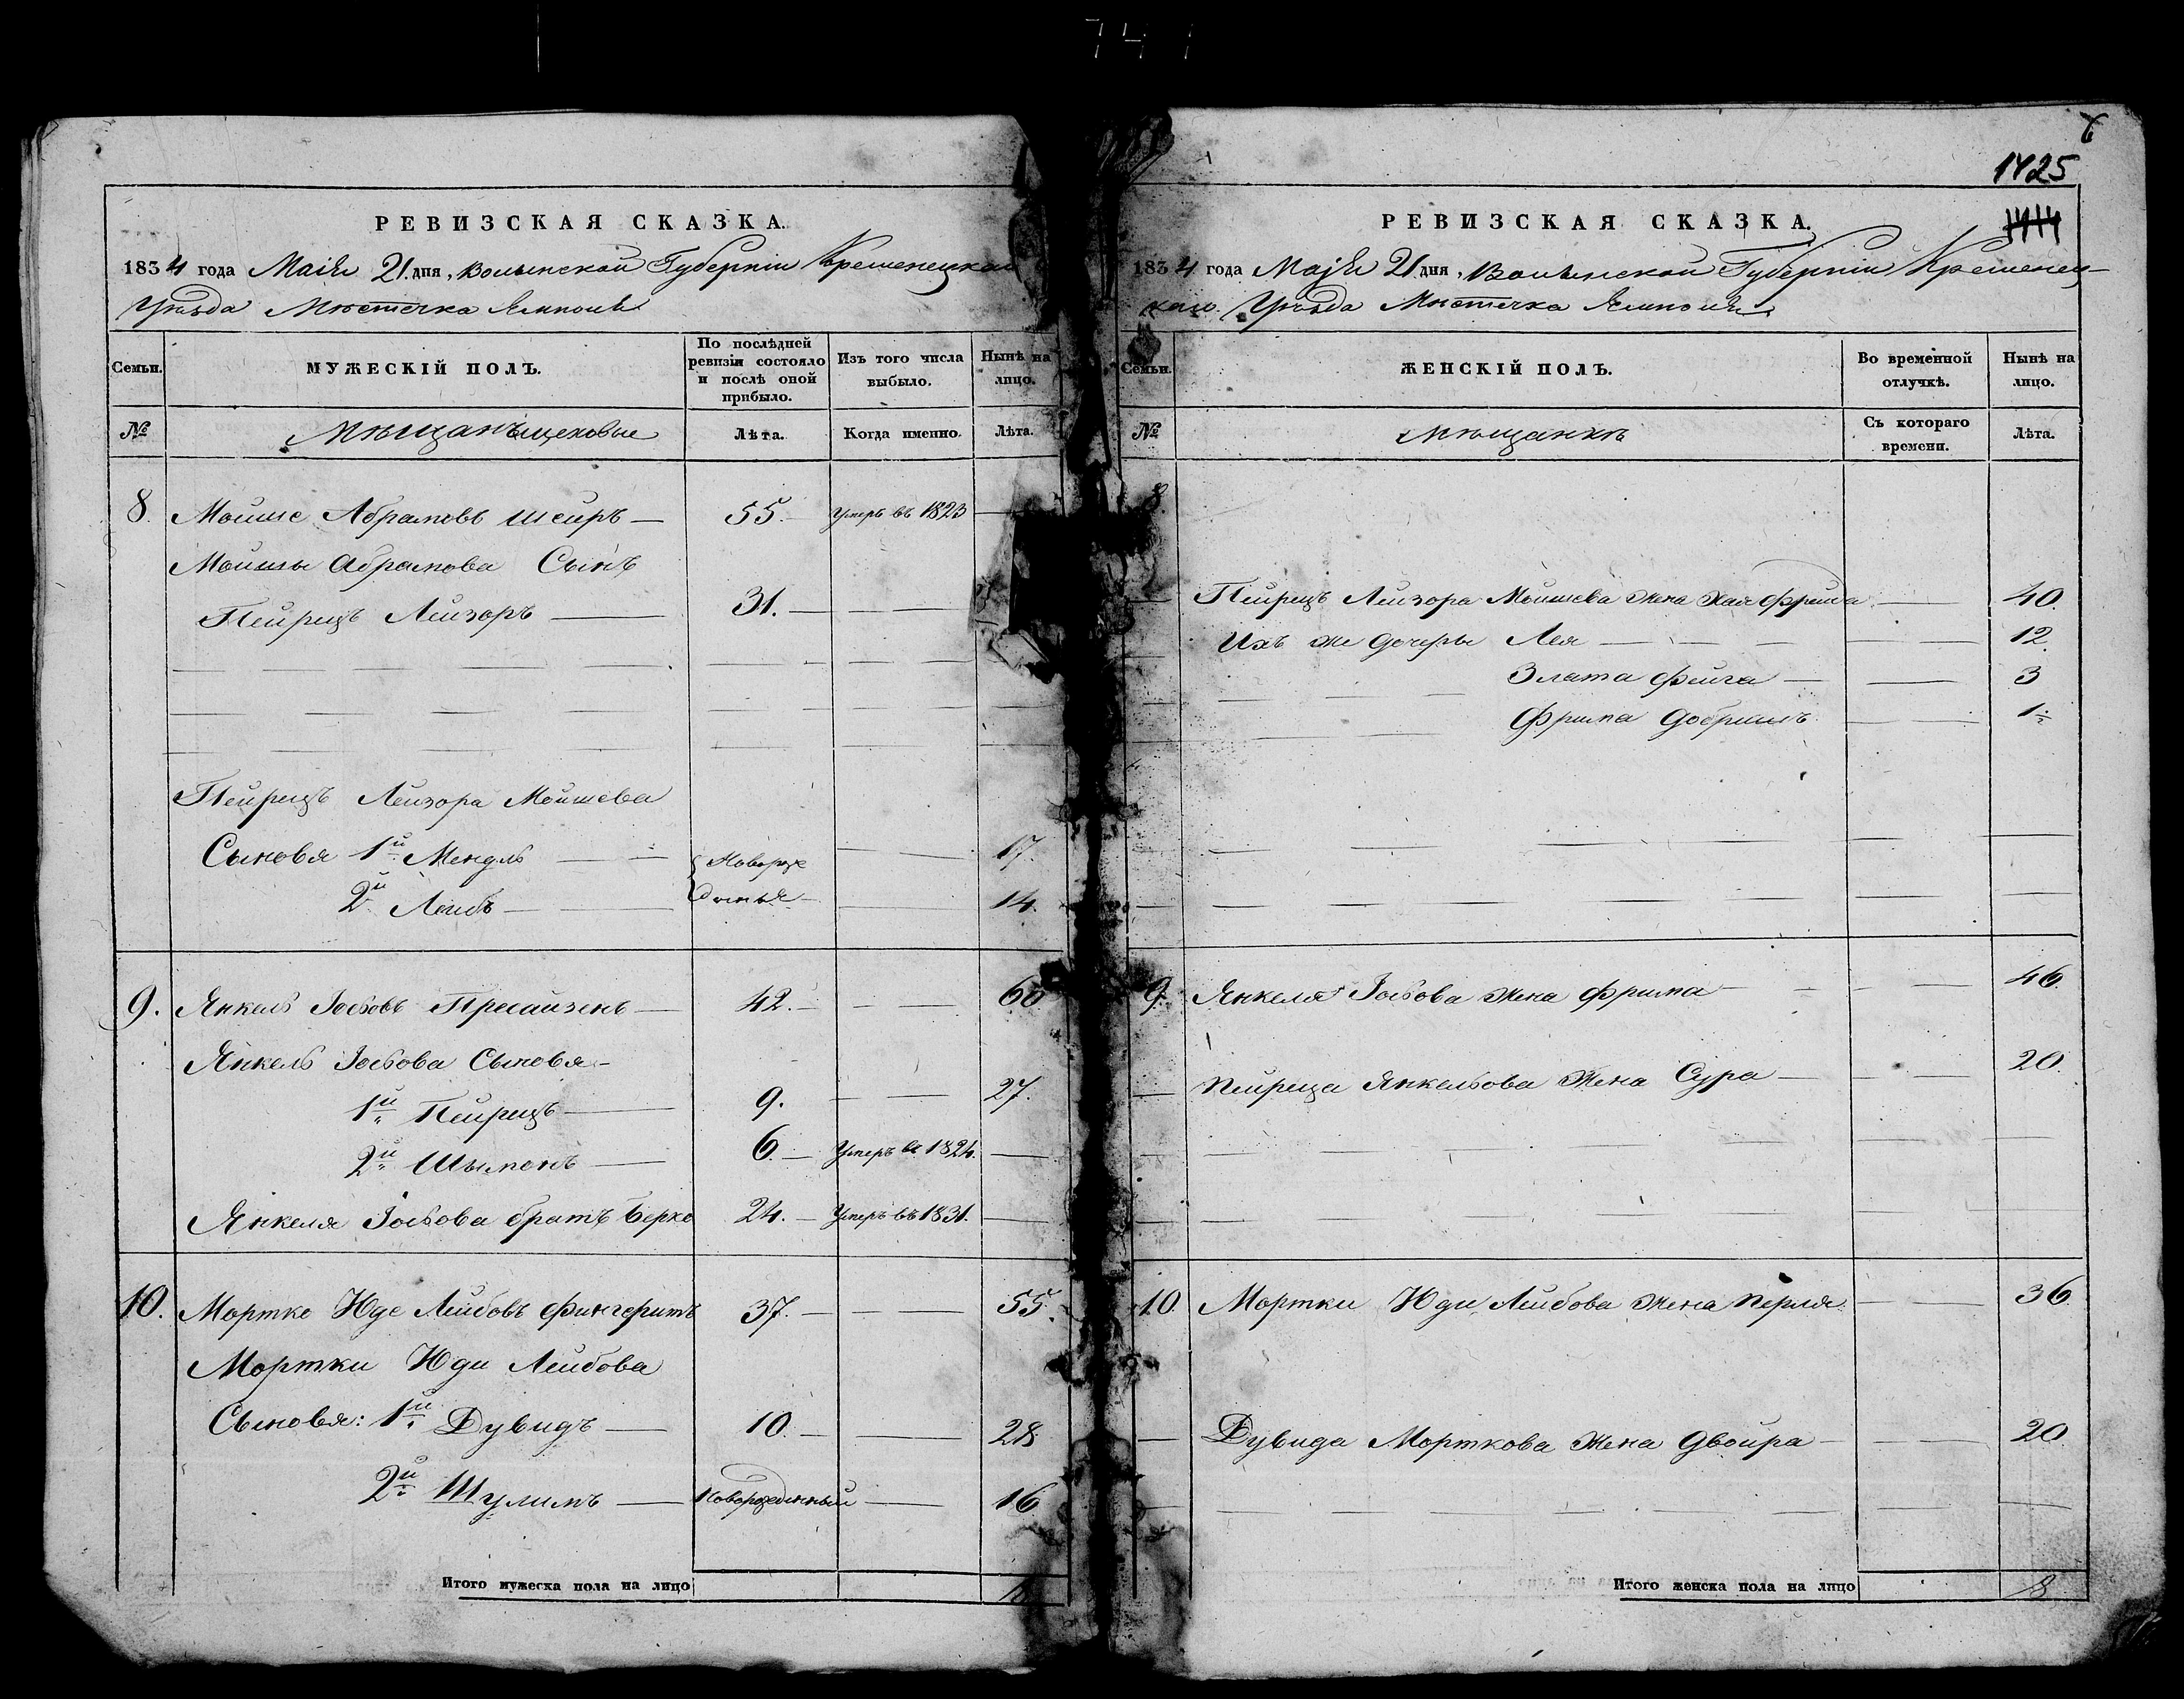 741
РЕВИЗСКАЯ СКАЗКА.
1834 года Маія 21 дня, Волынской Губерніи Кременецкаго
Уѣзда Мѣстечка Ямполя
Семьи. МУЖЕСКІЙ ПОЛЪ. По послѣдней ревизіи состояло и послѣ оной прибыло. Изъ того числа выбыло. Нынѣ на лицо.
№ Мѣщанѣ цеховые Лѣта. Когда именно. Лѣта.
8. Мойше Абрамовъ Шейръ 55. Умеръ въ 1823
Мошы Абрамова Сынъ
Пейрецъ Лейзоръ 31.
Пейрецъ Лейзора Мойшева
Сыновя 1й Мендль Новорож 17.
2й Лейбъ 14.
9. Янкель Іосіовъ 42. 60
Янкель Іосіова Сыновя
1й Пейрецъ 9. 27.
2й Шымонъ 6. Умеръ въ 1824.
Янкеля Іосіова братъ Берко 24. Умеръ въ 1831.
10. Мортко Юде Лейбовъ Фингеритъ 37. 55.
Мортки Юди Лейбова
Сыновя: 1й Дувидъ 10. 28
2й Шулимъ Новорожденный 16
Итого мужеска пола на лицо
6
1425
1414
РЕВИЗСКАЯ СКАЗКА.
1834 года Маія 21 дня, Волынской Губерніи Кременец-
каго Уѣзда Мѣстечка Ямполя
Семьи. ЖЕНСКІЙ ПОЛЪ. Во временной отлучкѣ. Нынѣ на лицо.
№ Мѣщанкѣ Съ котораго времени. Лѣта.
8.
Пейрецъ Лейзора Мойшева жена Хая Фрейда 40.
Ихъ же дочеры Лея 12.
Злата Фейга 3
Фрима Добришъ 1
9. Янкеля Іосіова жена Фрима 46.
Пейреца Янкельова Жена Сура 20.
10. Мортки Юди Лейбова жена Перля 36
Дувида Морткова жена Двойра 20
Итого женска пола на лицо 8